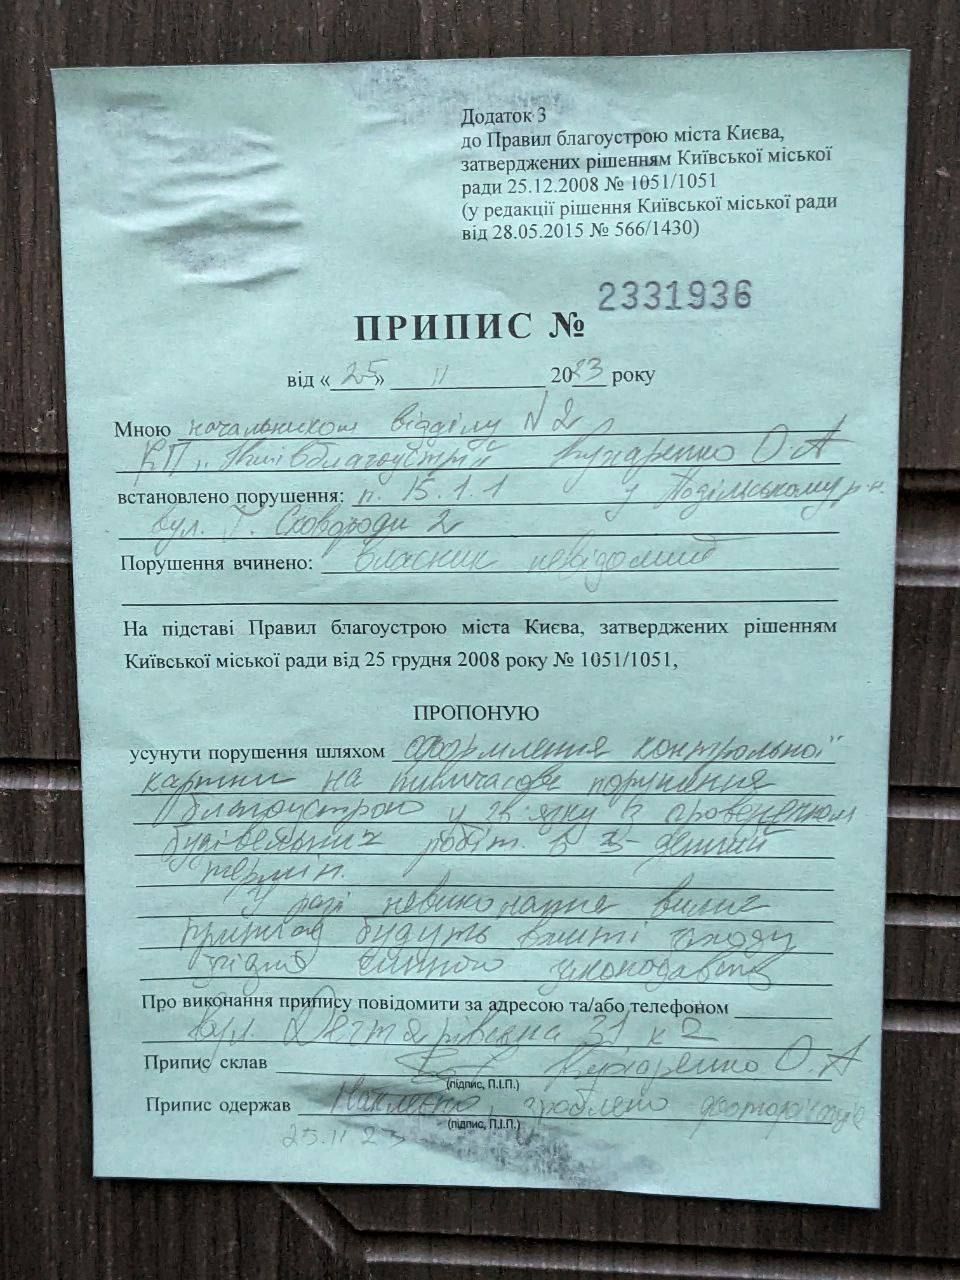 Додаток 3
до Правил благоустрою міста Києва,
затверджених рішенням Київської міської
ради 25.12.2008 № 1051/1051
(у редакції рішення Київської міської ради
від 28.05.2015 № 566/1430)
ПРИПИС № 2331936
від «25» 11 2023 року
Мною начальником відділу N 2
КП "Київблагоустрій О.А
встановлено порушення: п. 15.1.1 у Подільському р-н.
вул. Г. Сковороди 2
Порушення вчинено: власник невідомий
На підставі Правил благоустрою міста Києва, затверджених рішенням
Київської міської ради від 25 грудня 2008 року № 1051/1051,
ПРОПОНУЮ
усунути порушення шляхом оформлення контрольної
картки на тимчасове порушення
благоустрою у зв'язку з проведенням
будівельних робіт. в 3-денний
термін.
У разі невиконання вимог
припису будуть вжиті заходи
згідно чинного законодавства
Про виконання припису повідомити за адресою та/або телефоном
вул. Дегтярівська 31 к 2
Припис склав О.А
(підпис, П.І.П.)
Припис одержав Наклеєно, зроблено
(підпис, П.І.П.)
25.11.23